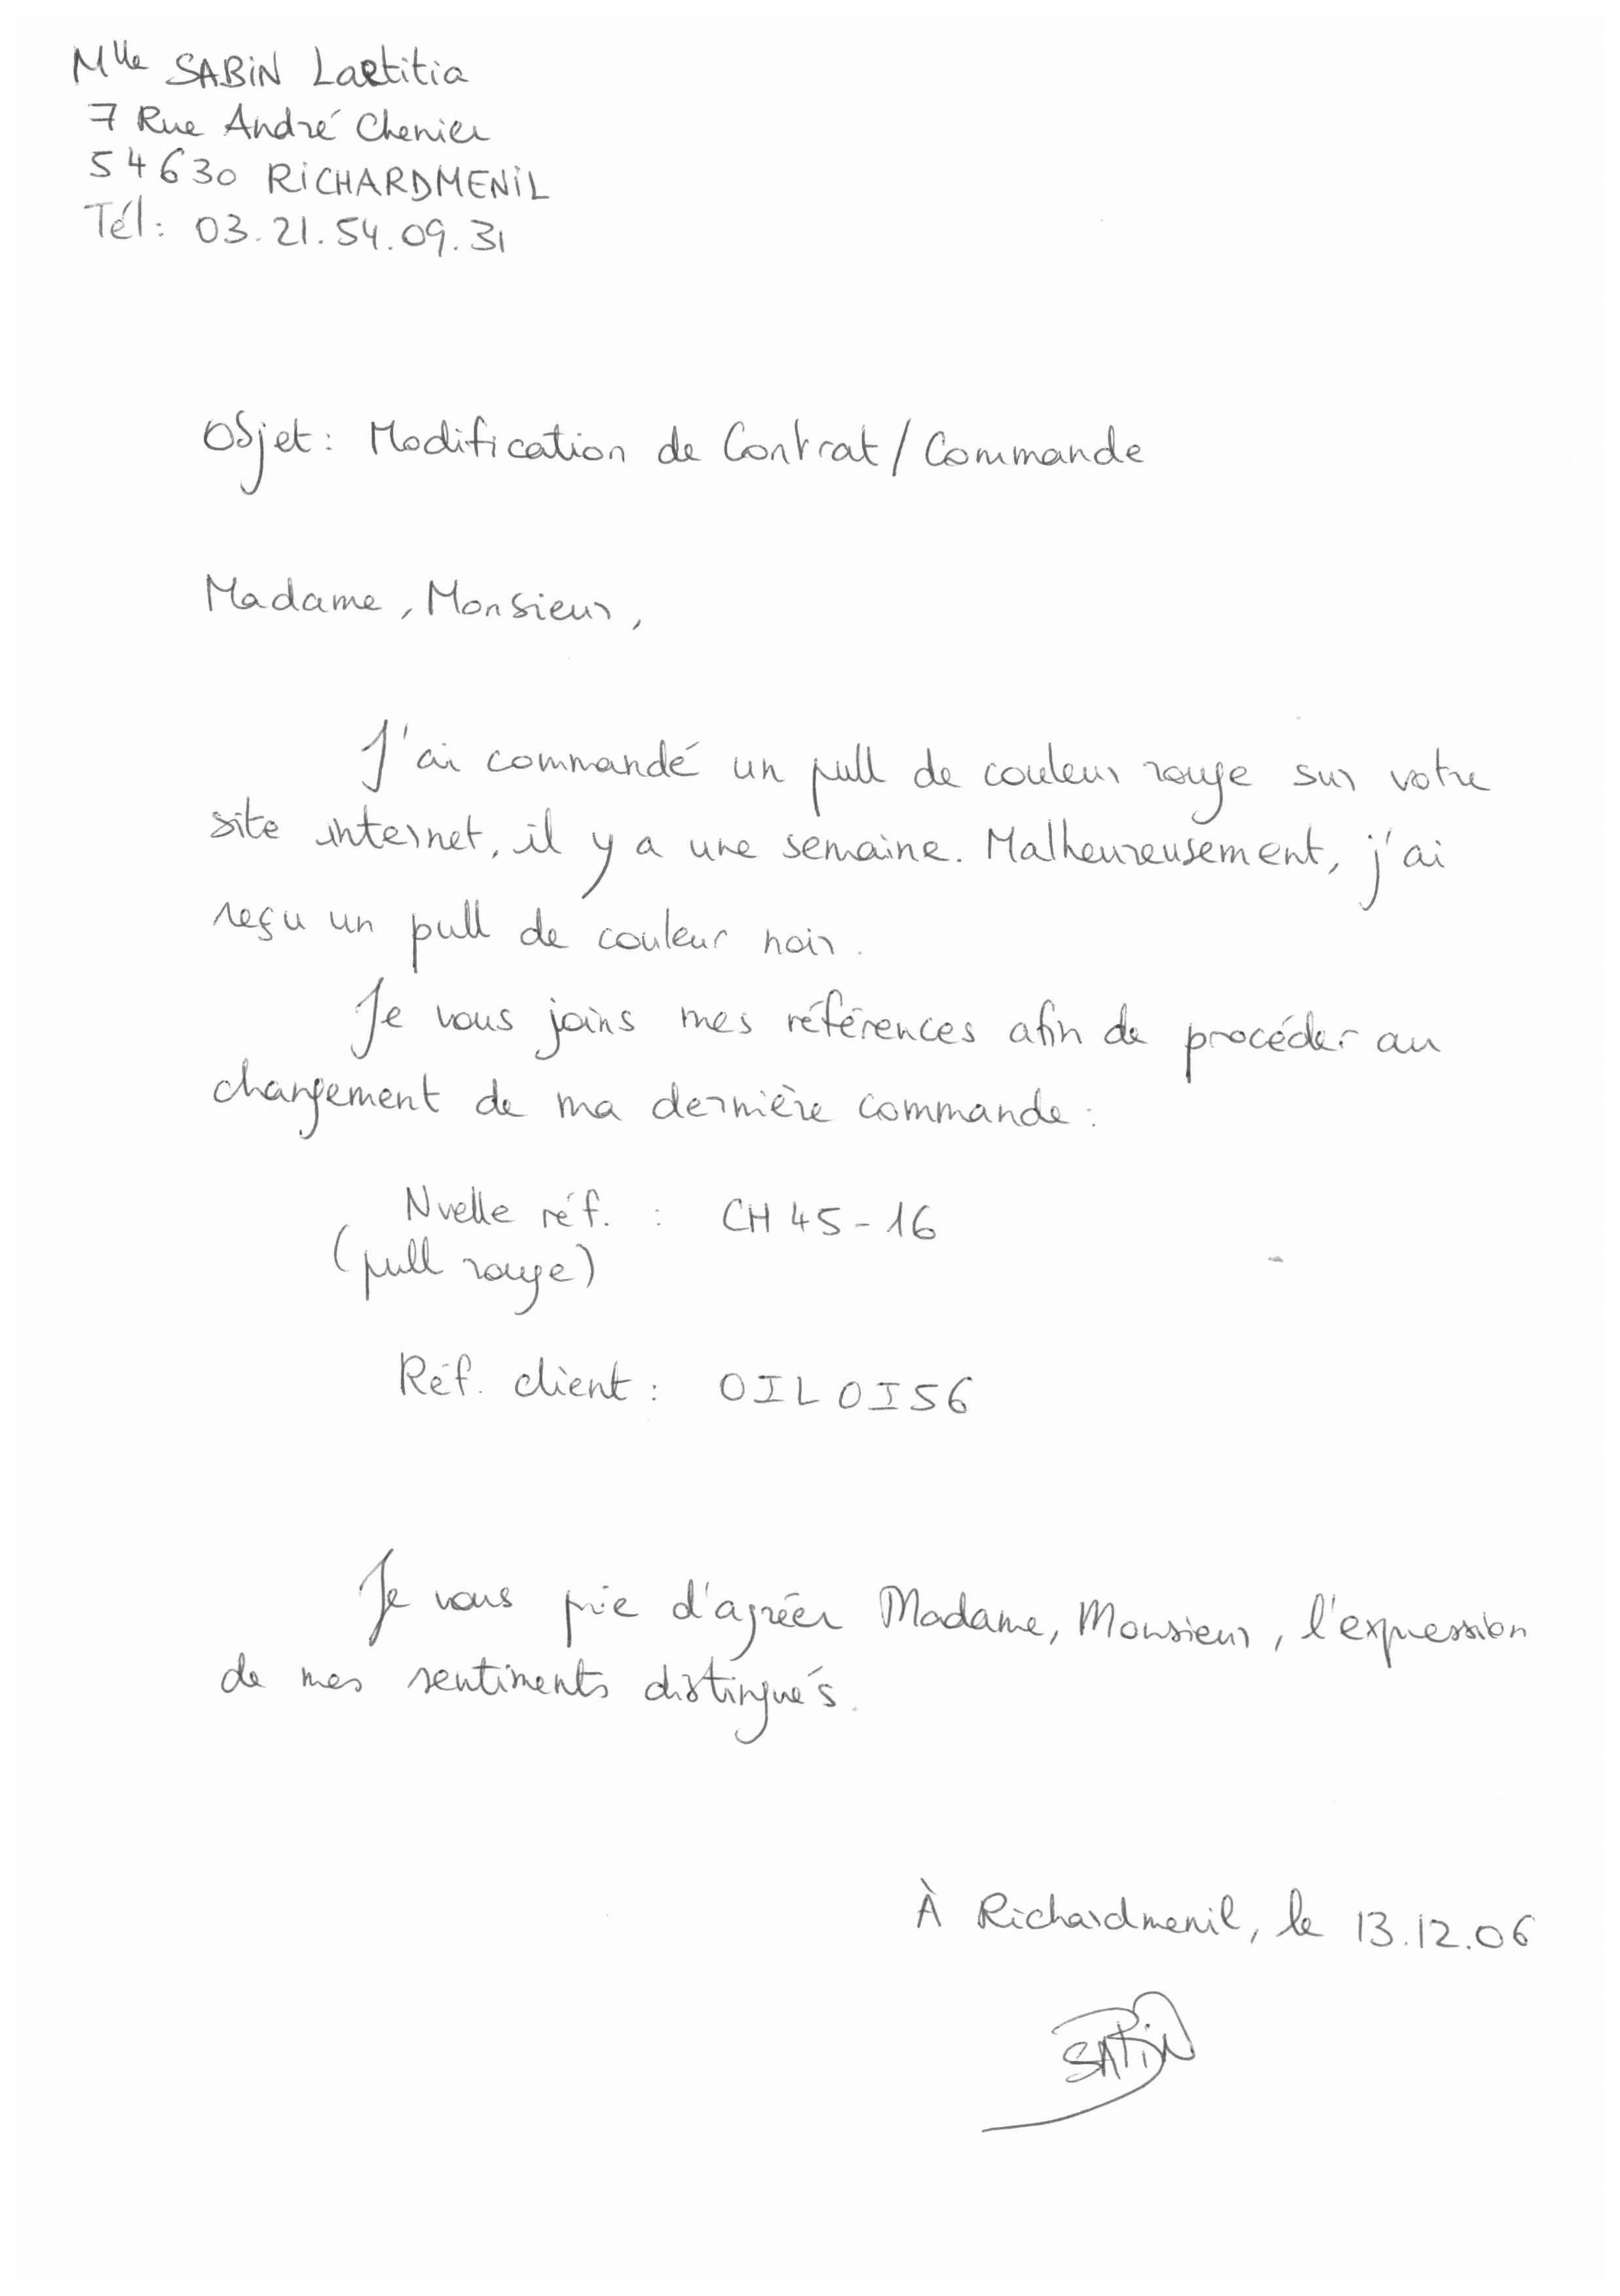 Mlle SABIN Laetitia
7 Rue André Chenier
54630 RICHARDMENIL
Tél: 03.21.54.09.31
Objet: Modification de Contrat/Commande
Madame, Monsieur,
J'ai commandé un pull de couleur rouge sur votre
site internet, il y a une semaine. Malheureusement, j'ai
reçu un pull de couleur noir.
Je vous joins mes références afin de procéder au
changement de ma dernière commande:
Nvelle réf. : CH45-16
(pull rouge)
Réf. client: OILOI56
Je vous prie d'agréer Madame, Monsieur, l'expression
de mes sentiments distingués.
À Richardmenil, le 13.12.06
SABIN